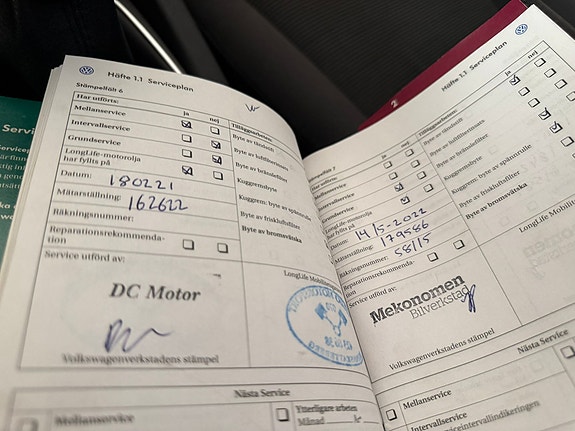 Häfte 1.1 Serviceplan
Stämpelfält 6
Har utförts:
ja nej
Mellanservice
Intervallservice
Grundservice
LongLife-motorolja
har fyllts på
Datum: 180221
Mätarställning: 162622
Räkningsnummer:
Reparationsrekommenda-
tion
Service utförd av:
DC Motor
Volkswagenverkstadens stämpel
Tilläggsarbeten:
Byte av tändstift
Byte av luftfiltertinsats
Byte av bränslefilter
Kuggremsbyte
Kuggrem: byte av spännrulle
Byte av friskluftsfilter
Byte av bromsvätska
LongLife Mobilitets
Nästa Service
Mellanservice
Ytterligare arbeten
Månad
2
Häfte 1.1 Serviceplan
Stämpelfält 7
Har utförts:
ja nej
Mellanservice
Intervallservice
Grundservice
LongLife-motorolja
har fyllts på
Datum: 14/5-2022
Mätarställning: 179586
Räkningsnummer: 58/15
Reparationsrekommenda-
tion
Service utförd av:
Mekonomen
Bilverkstad
Volkswagenverkstadens stämpel
Tilläggsarbeten:
ja nej
Byte av tändstift
Byte av luftfiltertinsats
Byte av bränslefilter
Kuggremsbyte
Kuggrem: byte av spännrulle
Byte av friskluftsfilter
Byte av bromsvätska
LongLife Mobilitets
Nästa Service
Mellanservice
Intervallservice
Serviceintervallindikeringen